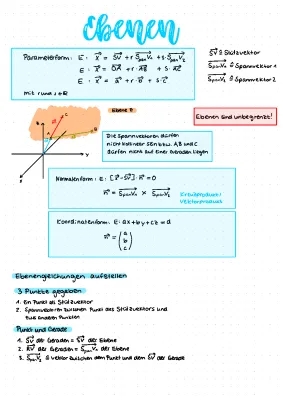 Ebenen
Parameterform: E: x⃗ = SV⃗ + r·SpanV₁⃗ + s·SpanV₂⃗
E: x⃗ = OA⃗ + r·AB⃗ + s·AC⃗
E: x⃗ = a⃗ + r·b⃗ + s·c⃗
mit r und s ∈ R
SV⃗ ≙ Stützvektor
SpanV₁⃗ ≙ Spannvektor 1
SpanV₂⃗ ≙ Spannvektor 2
Ebene E
Ebenen sind unbegrenzt!
Die Spannvektoren dürfen
nicht kollinear sein bzw. A,B und C
dürfen nicht auf einer Geraden liegen
Normalenform: E: [x⃗-SV⃗]·n⃗ = 0
n⃗ = SpanV₁⃗ × SpanV₂⃗
Kreuzprodukt/
Vektorprodukt
Koordinatenform: E: ax+by+cz = d
n⃗ = (a b c)
Ebenengleichungen aufstellen
3 Punkte gegeben
1. Ein Punkt als Stützvektor
2. Spannvektoren zwischen Punkt des Stützvektors und
zwei anderen Punkten
Punkt und Gerade
1. SV⃗ der Geraden = SV⃗ der Ebene
2. RV⃗ der Geraden = SpanV₁⃗ der Ebene
3. SpanV₂⃗ ≙ Vektor zwischen dem Punkt und dem SV⃗ der Gerade